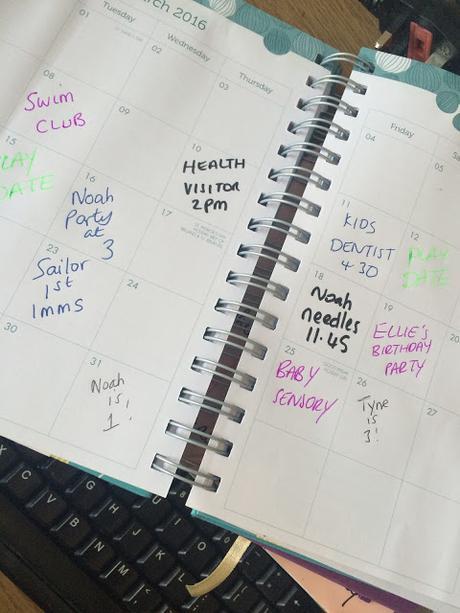 March 2016
Tuesday
Wednesday
Thursday
01
02
03
08
SWIM
CLUB
09
10
HEALTH
VISITOR
2PM
15
PLAY
DATE
16
Noah
Party
at
3
17
23
Sailor
1st
Imms
24
30
31
Noah
is
1!
Friday
04
05
11
KIDS
DENTIST
4 30
12
PLAY
DATE
18
Noah
needles
11.45
19
ELLIE'S
BIRTHDAY
PARTY
20
25
BABY
SENSORY
26
Tyne
is
3!
27